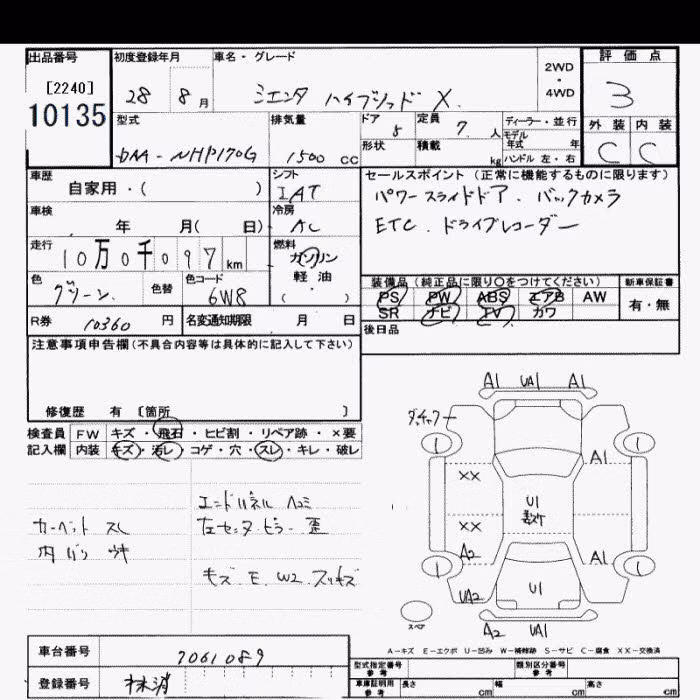 出品番号 初度登録年月 車名・グレード 評価点
[2240] 2WD
28 8月 シエンタ ハイブリッド X ・ 3
10135 4WD
型式 排気量 ドア 定員 ディーラー・並行 外装 内装
5 7人 モデル
年式 年
DAA-NHP170G 1500cc 形状 積載 kg ハンドル 左・右 C C
車歴 シフト セールスポイント (正常に機能するものに限ります)
自家用・( ) IAT パワースライドドア. バックカメラ
車検 冷房
年 月( 日) AC ETC. ドライブレコーダー
走行 燃料
10万0千097km ガソリン
軽油
色 色替 色コード ( ・ ) 装備品 (純正品に限り○をつけてください) 新車保証書
グリーン. 6W8 PS PW ABS エアB AW 有・無
SR ナビ TV カワ
R券 10360円 名変通知期限 月 日
後日品
注意事項申告欄(不具合内容等は具体的に記入して下さい)
修復歴 有 [箇所 ]
検査員 FW キズ・飛石・ヒビ割・リペア跡・×要
記入欄 内装 キズ・汚レ・コゲ・穴・スレ・キレ・破レ
エンドパネル ヘコミ
カーペット スレ 左センターピラー 歪
内バリ
キズ. E. W2. スリキズ
A1 UA1 A1
1 1
A1
XX
U1
XX
A2 A1
1 1
UA2 U1
スペア
A2 UA1
A-キズ E-エクボ U-凹み W-補修跡 S-サビ C-腐食 XX-交換済
車台番号 7061089
型式指定番号 類別区分番号
参考 参考
登録番号 抹消
車庫証明用 長さ 幅 高さ
参考 cm cm cm